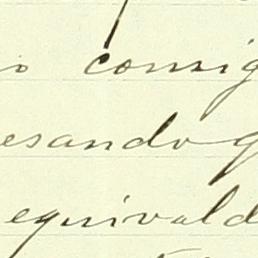 o consig
esando q
equivald